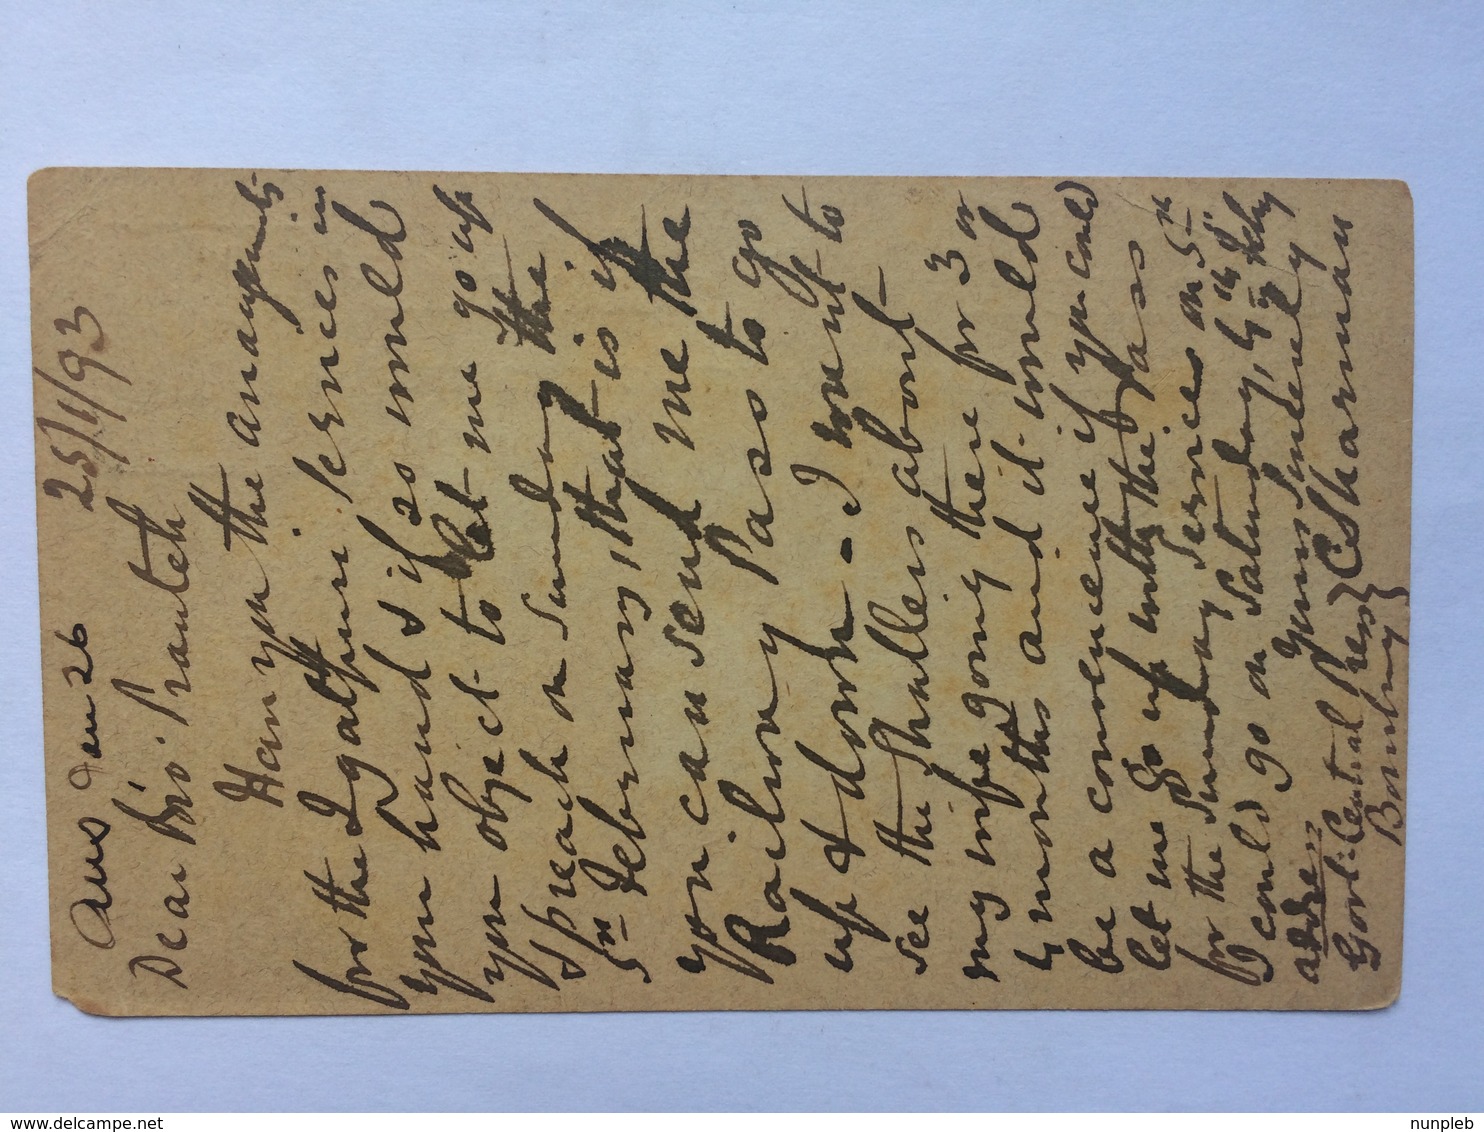 Ans Jan 26
25/1/93
Dear Bro. Prautch
Have you the arrangements
for the Igatpuri services in
your hand & if so would
you object to let me go up
& preach on Sunday the
5th February, that is if
you can send me the
Railway Pass to go
up & down - I want to
see the Shallers about
my wife going there for 3 or
4 months and it would
be a convenience if you could
let me go up with the Pass
for the Sunday Services on 5th
I could go on Saturday, 4th Feby
Yours Sincerely
C S Sharman
address
Govt. Central Press
Bombay
delcampe.net
nunpleb